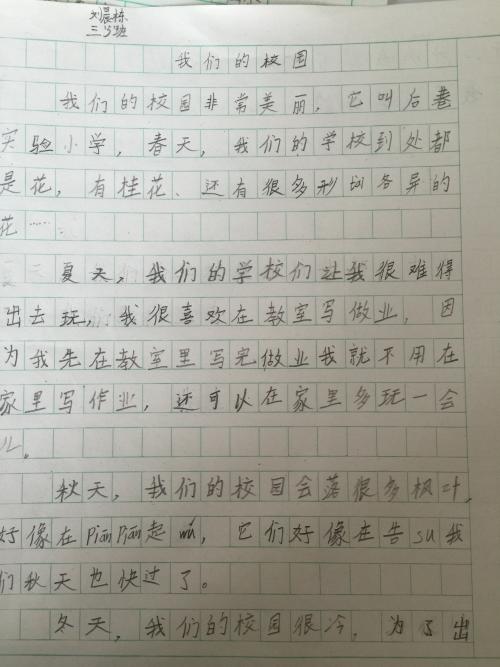 刘晨栋
三丫班
我们的校园
我们的校园非常美丽，它叫后巷
实验小学，春天，我们的学校到处都
是花，有桂花、还有很多形状各异的
花……
夏天，我们的学校们让我很难得
出去玩，我很喜欢在教室写做业，因
为我先在教室里写完做业我就不用在
家里写作业，还可以在家里多玩一会
儿。
秋天，我们的校园会落很多枫叶，
好像在piānpiān起wǔ，它们好像在告su我
们秋天也快过了。
冬天，我们的校园很冷，为了出